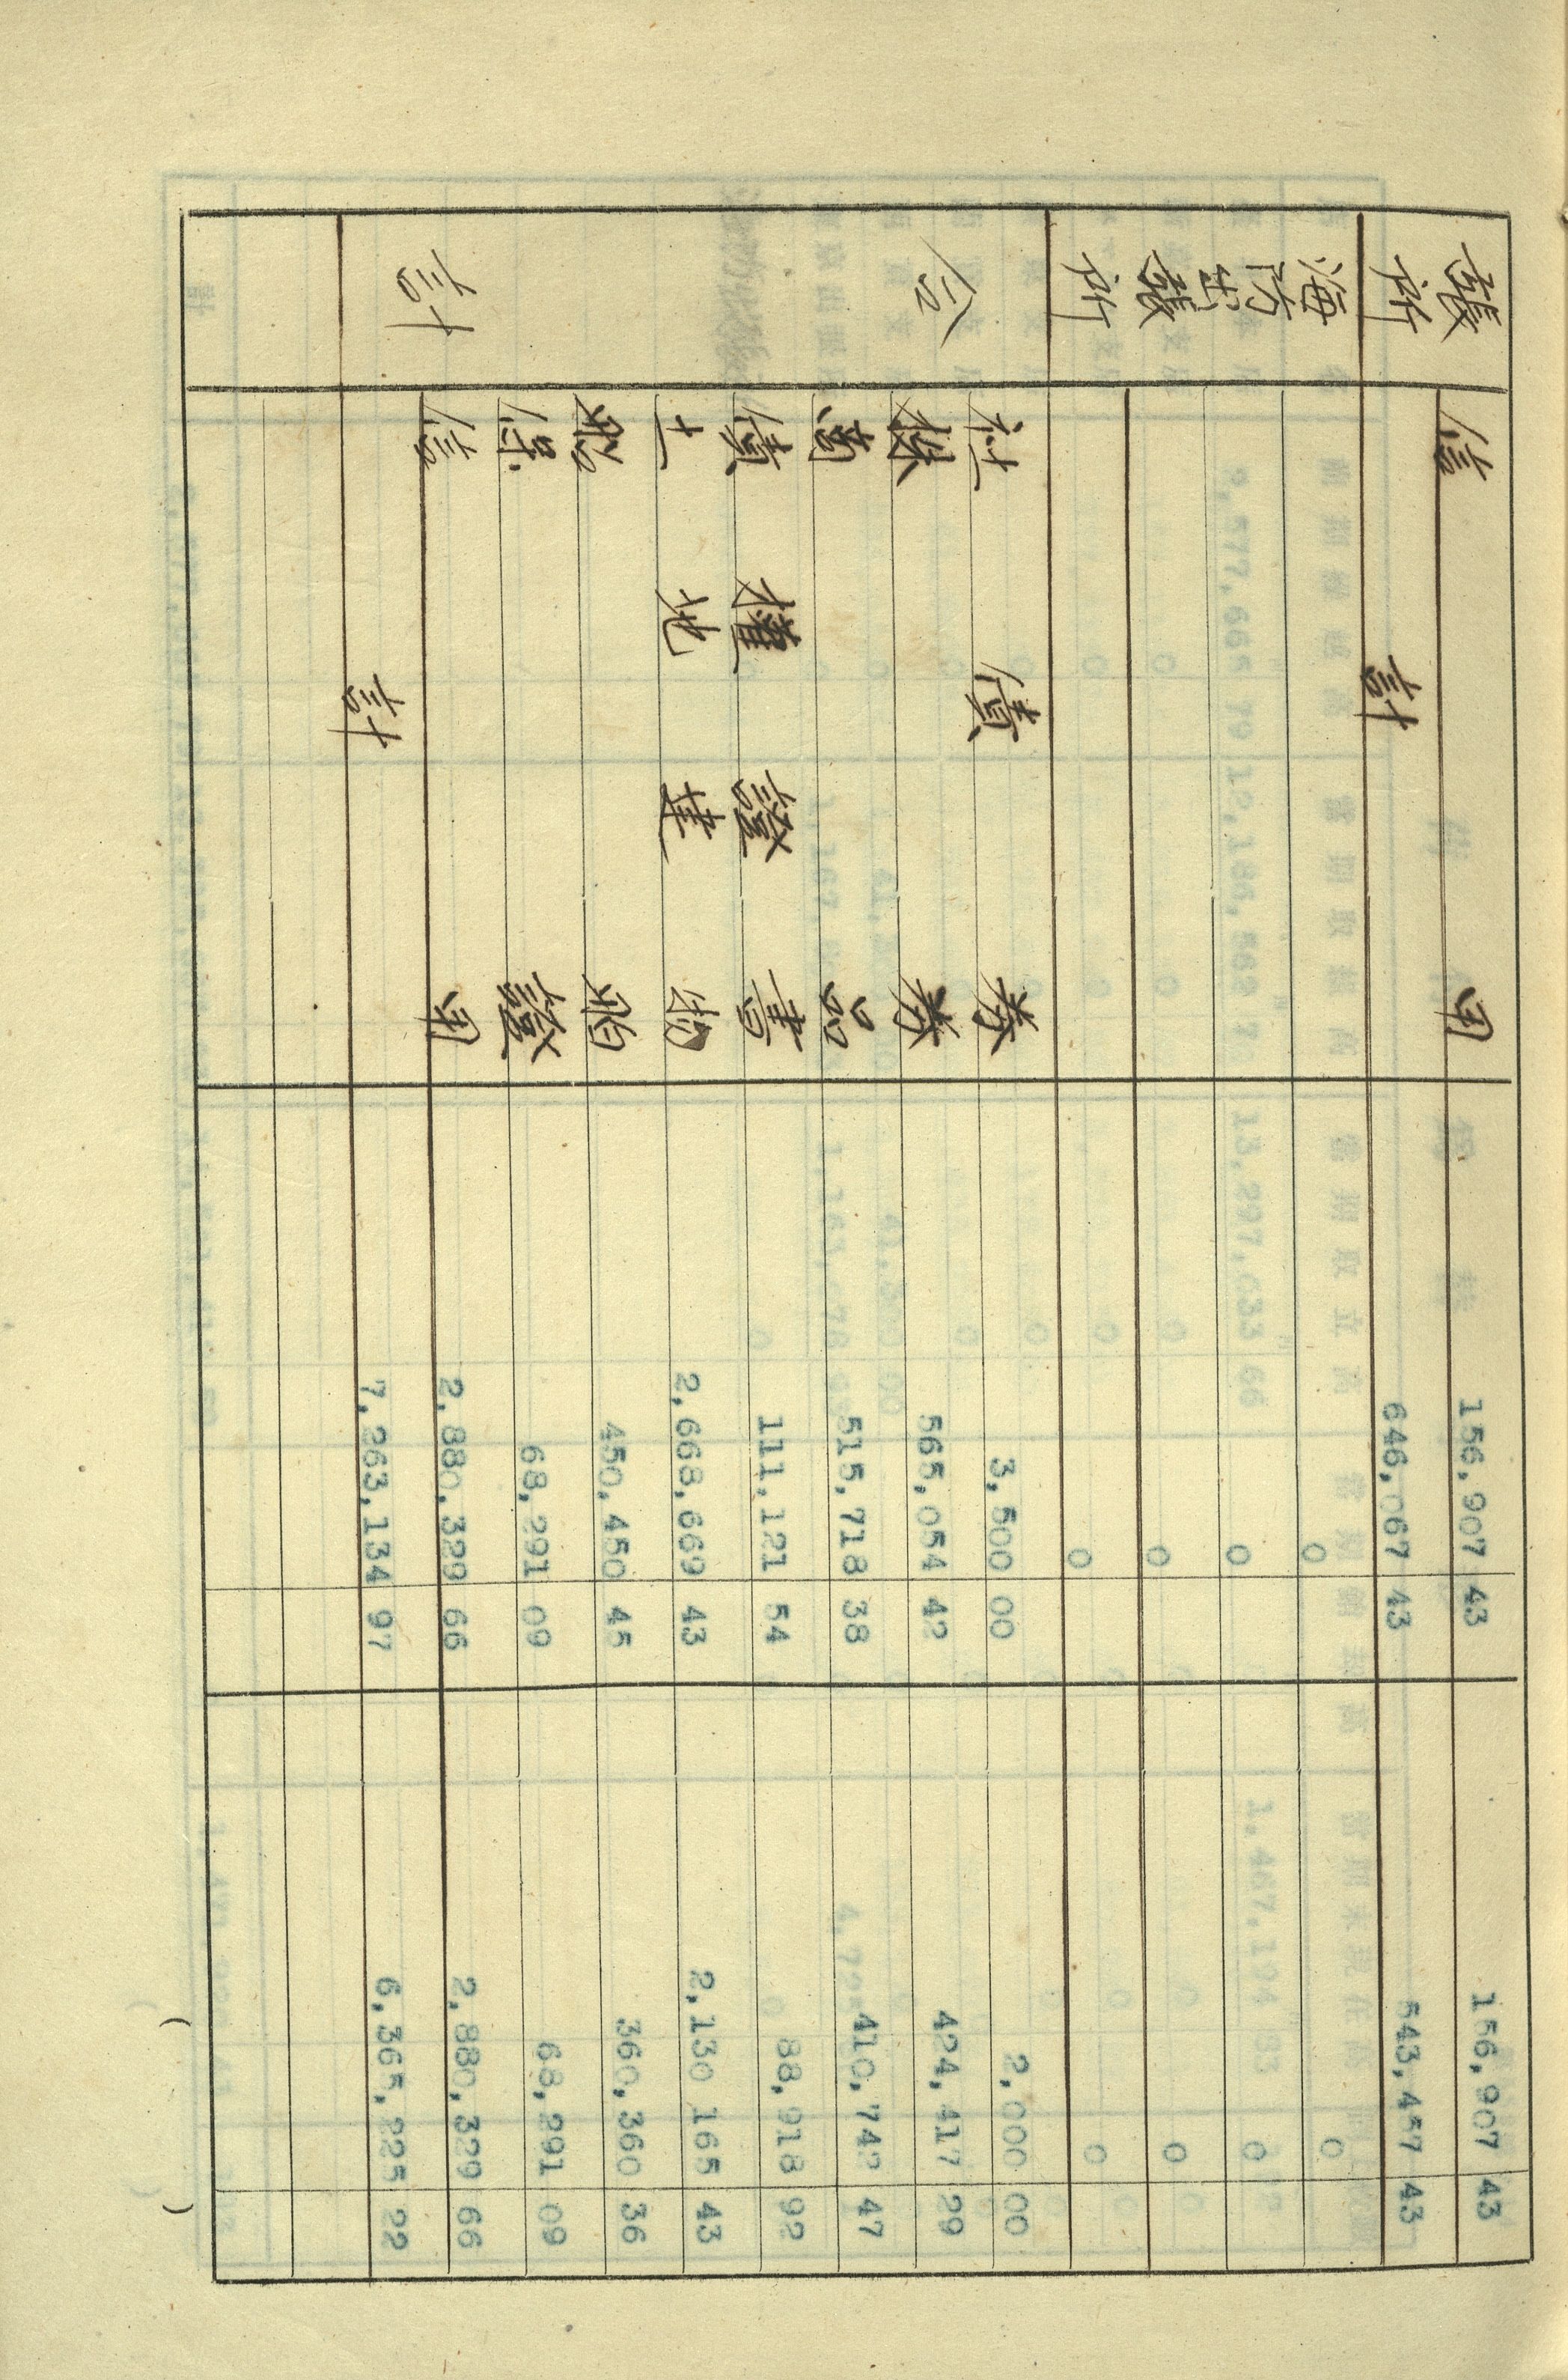 張所
信用 156,907 43 156,907 43
計 646,067 43 543,457 43
海防出張所
0 0
0 0
0 0
0 0
合計
社債券 3,500 00 2,000 00
株券 565,054 42 424,417 29
商品 515,718 38 410,742 47
債權證書 111,121 54 88,918 92
土地建物 2,668,669 43 2,130 165 43
船舶 450,450 45 360,360 36
保證 68,291 09 68,291 09
信用 2,880,329 66 2,880,329 66
計 7,263,134 97 6,365,225 22